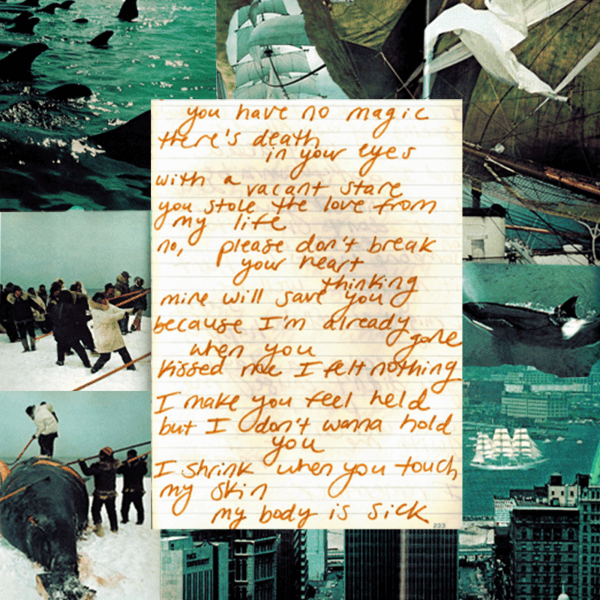 you have no magic
there's death
in your eyes
with a vacant stare
you stole the love from
my life
no, please don't break
your heart
thinking
mine will save you
because I'm already
gone
when you
kissed me I felt nothing
I make you feel held
but I don't wanna hold
you
I shrink when you touch
my skin
my body is sick
233